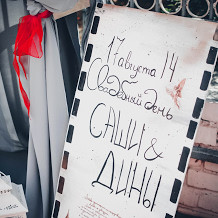 17 августа 14
Свадебный день
САШИ &
ДИНЫ